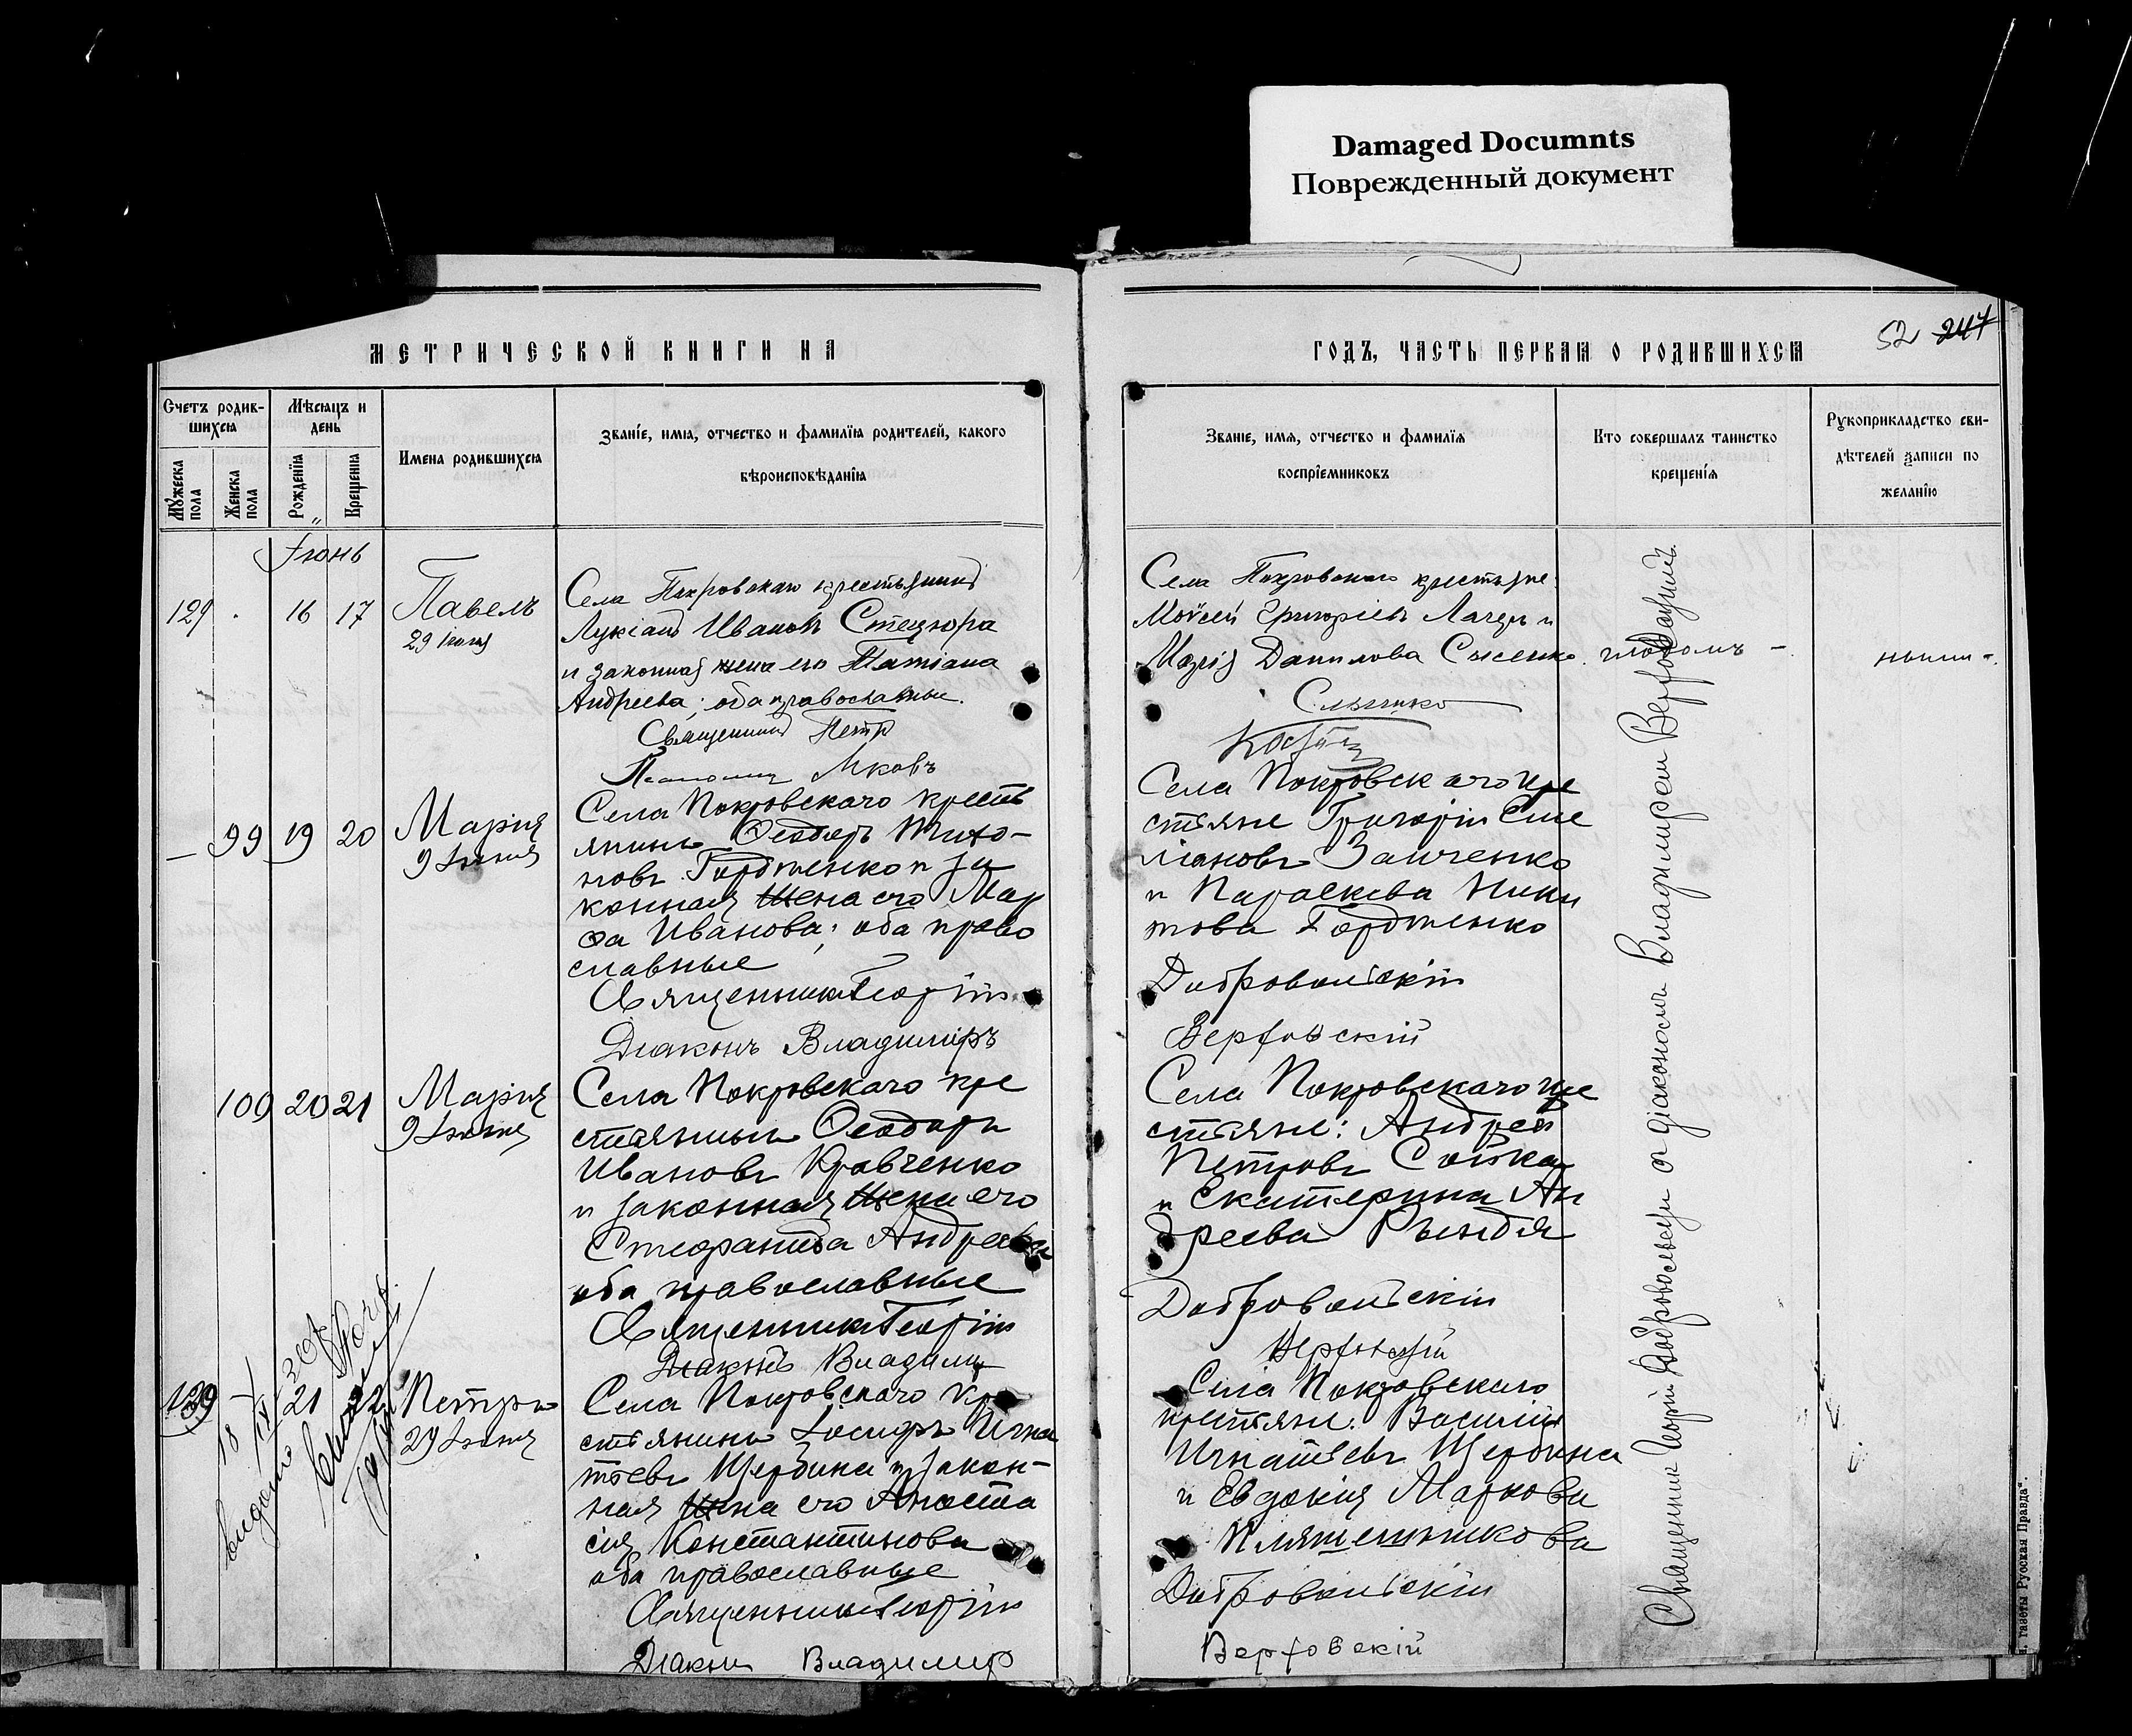 Damaged Documnts
Поврежденный документ
МЕТРИЧЕСКОЙ КНИГИ НА
ГОДЪ, ЧАСТЬ ПЕРВАЯ О РОДИВШИХСЯ
52 247
Счетъ родив-
шихся
Мужеска пола
Женска пола
Мѣсяцъ и
день
Рожденїя
Крещенїя
Имена родившихся
Званїе, имя, отчество и фамилїя родителей, какого
вѣроисповѣданїя
Званїе, имя, отчество и фамилїя
воспрїемниковъ
Кто совершалъ таинство
крещенїя
Рукоприкладство сви-
дѣтелей записи по
желанїю
Іюнь
129 16 17 Павелъ
29 Іюня
Села Покровскаго крестьянинъ
Лукіанъ Ивановъ Стецюра
и законная жена его Татіана
Андреева; оба православные.
Священникъ Петр
Яковъ
Села Покровскаго крестьяне
Моисей Григоріевъ и
Марія Данилова
99 19 20 Марія
9 Іюня
Села Покровскаго кресть
янинъ Ѳеодоръ Тихо-
новъ Гордіенко и за
конная жена его Мар
ѳа Иванова; оба право
славные
Священникъ Георгій
Діаконъ Владиміръ
Села Покровскаго кре
стьяне Григорій Еме
ліановъ Заиченко
и Параскева Ники
това Гордіенко
Добровольскій
Верховскій
100 20 21 Марія
9 Іюня
Села Покровскаго кре
стьянинъ Ѳеодоръ
Ивановъ Кравченко
и законная жена его
Стефанида Андреева
оба православные
Священникъ Георгій
Діаконъ Владимир
Села Покровскаго кре
стьяне: Андрей
Петровъ Сойка
и Екатерина Ан
дреева Рындя
Добровольскій
Верховскій
21 22 Петръ
29 Іюня
Села Покровскаго кре
стьянинъ Іосифъ Игна
тьевъ Щербина и закон-
ная жена его Анаста
сія Константинова
оба православные
Священникъ Георгій
Діаконъ Владимир
Села Покровскаго
крестьяне: Василій
Игнатьевъ Щербина
и Евдокія Маркова
Добровольскій
Верховскій
Священник Георгій Добровольскій с діакономъ Владиміром Верховскимъ
газеты Русская Правда".